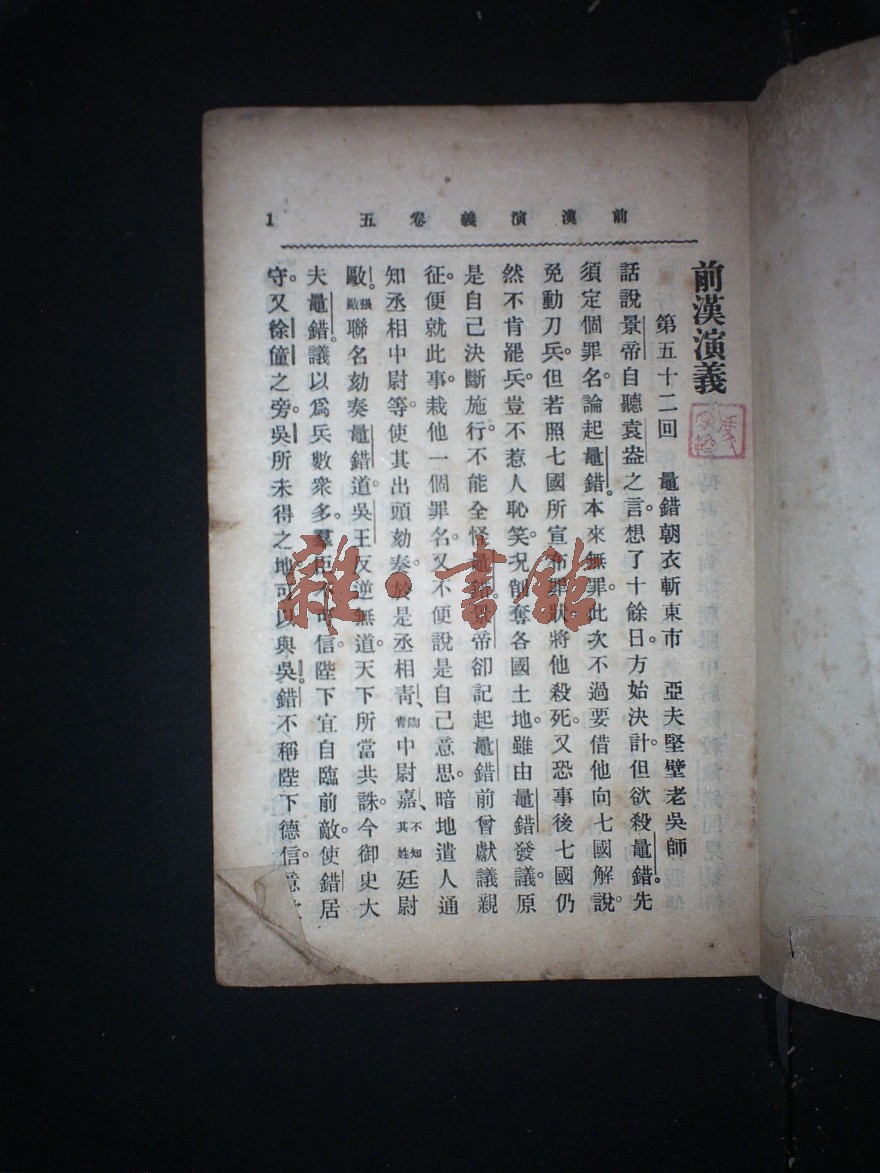 前漢演義卷五 1
前漢演義
第五十二回 鼂錯朝衣斬東市 亞夫堅壁老吳師
話說景帝自聽袁盎之言。想了十餘日。方始決計。但欲殺鼂錯。先
須定個罪名。論起鼂錯。本來無罪。此次不過要借他向七國解說。
免動刀兵。但若照七國所宣布罪狀。將他殺死。又恐事後七國仍
然不肯罷兵。豈不惹人恥笑。况削奪各國土地。雖由鼂錯發議。原
是自己決斷施行。不能全怪鼂錯。景帝卻記起鼂錯前曾獻議親
征。便就此事。栽他一個罪名。又不便說是自己意思。暗地遣人通
知丞相中尉等。使其出頭劾奏。於是丞相靑、陶靑中尉嘉、不知其姓廷尉
歐。張歐聯名劾奏鼂錯道。吳王反逆無道。天下所當共誅。今御史大
夫鼂錯。議以爲兵數衆多。羣臣不可信。陛下宜自臨前敵。使錯居
守。又徐僮之旁。吳所未得之地。可以與吳。錯不稱陛下德信。
雜·書館